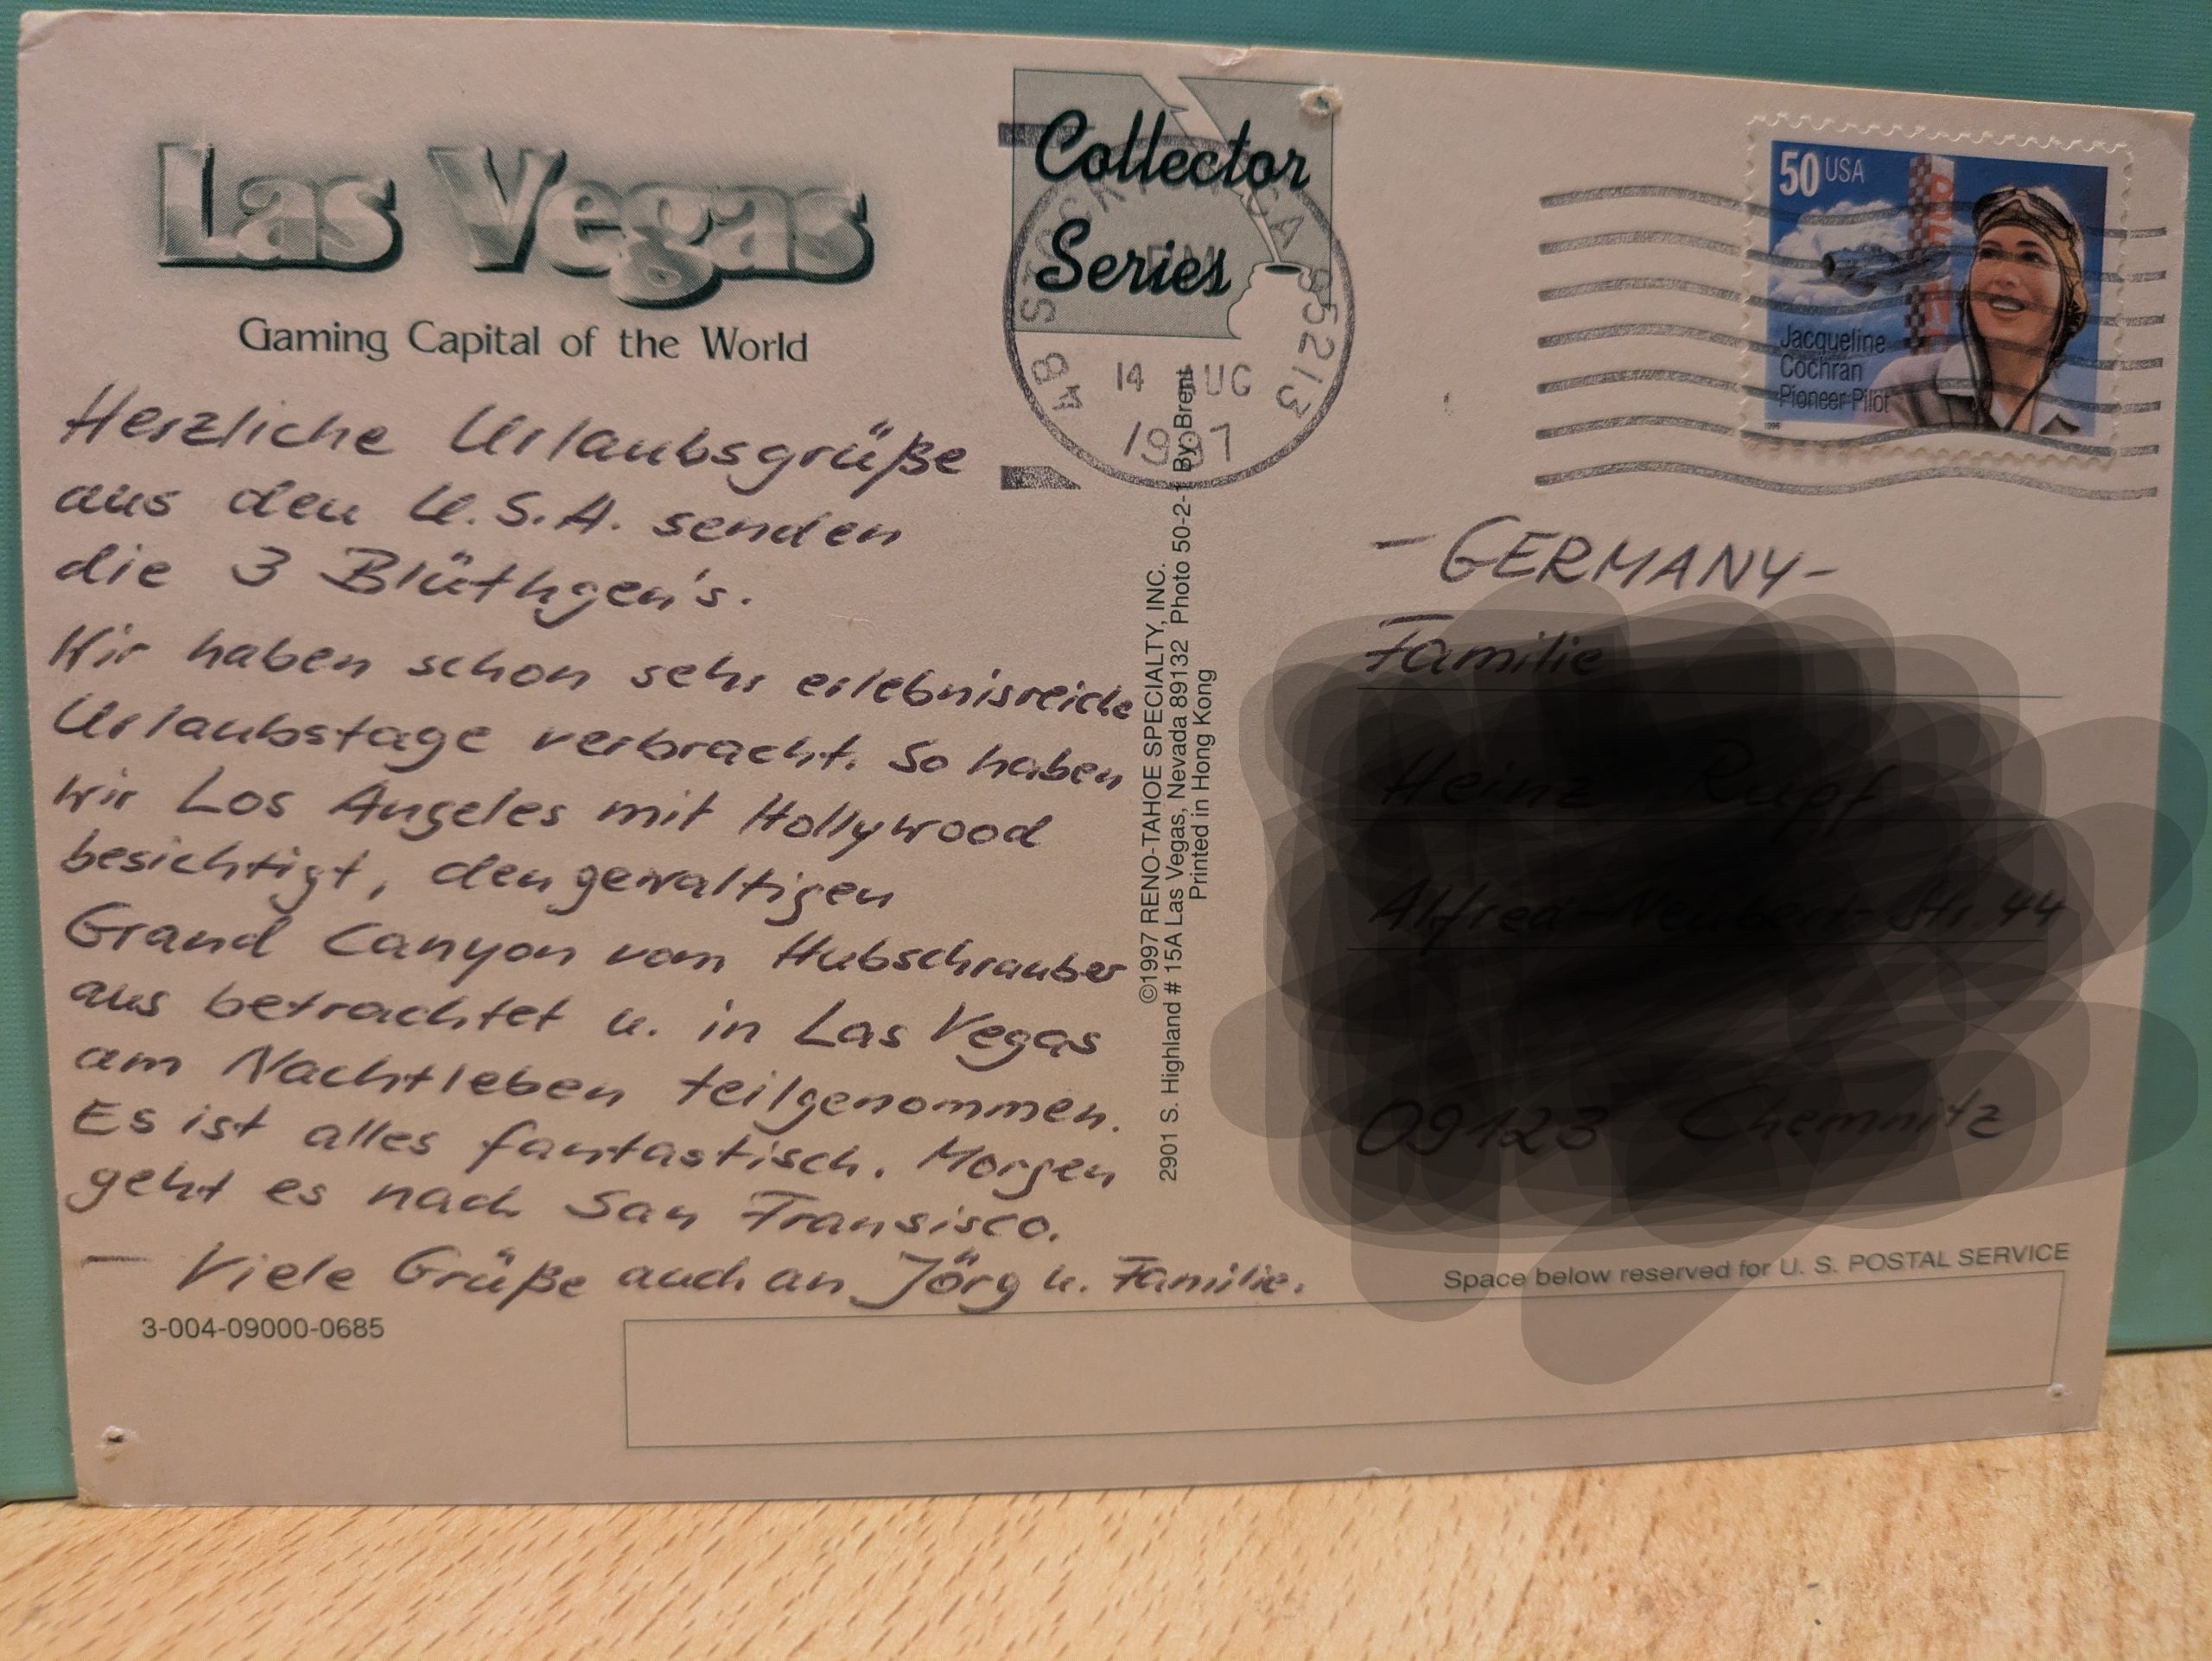 Las Vegas
Gaming Capital of the World
Collector
Series
CA 95213
14 AUG
1997
50 USA
Jacqueline
Cochran
Pioneer Pilot
1996
Herzliche Urlaubsgrüße
aus den U.S.A. senden
die 3 Blüthgen's.
Wir haben schon sehr erlebnisreiche
Urlaubstage verbracht. So haben
wir Los Angeles mit Hollywood
besichtigt, den gewaltigen
Grand Canyon vom Hubschrauber
aus betrachtet u. in Las Vegas
am Nachtleben teilgenommen.
Es ist alles fantastisch. Morgen
geht es nach San Fransisco.
— Viele Grüße auch an Jörg u. Familie.
3-004-09000-0685
©1997 RENO-TAHOE SPECIALTY, INC.
2901 S. Highland # 15A Las Vegas, Nevada 89132 Photo 50-2-1 By: Brent
Printed in Hong Kong
- GERMANY -
Familie
Space below reserved for U. S. POSTAL SERVICE